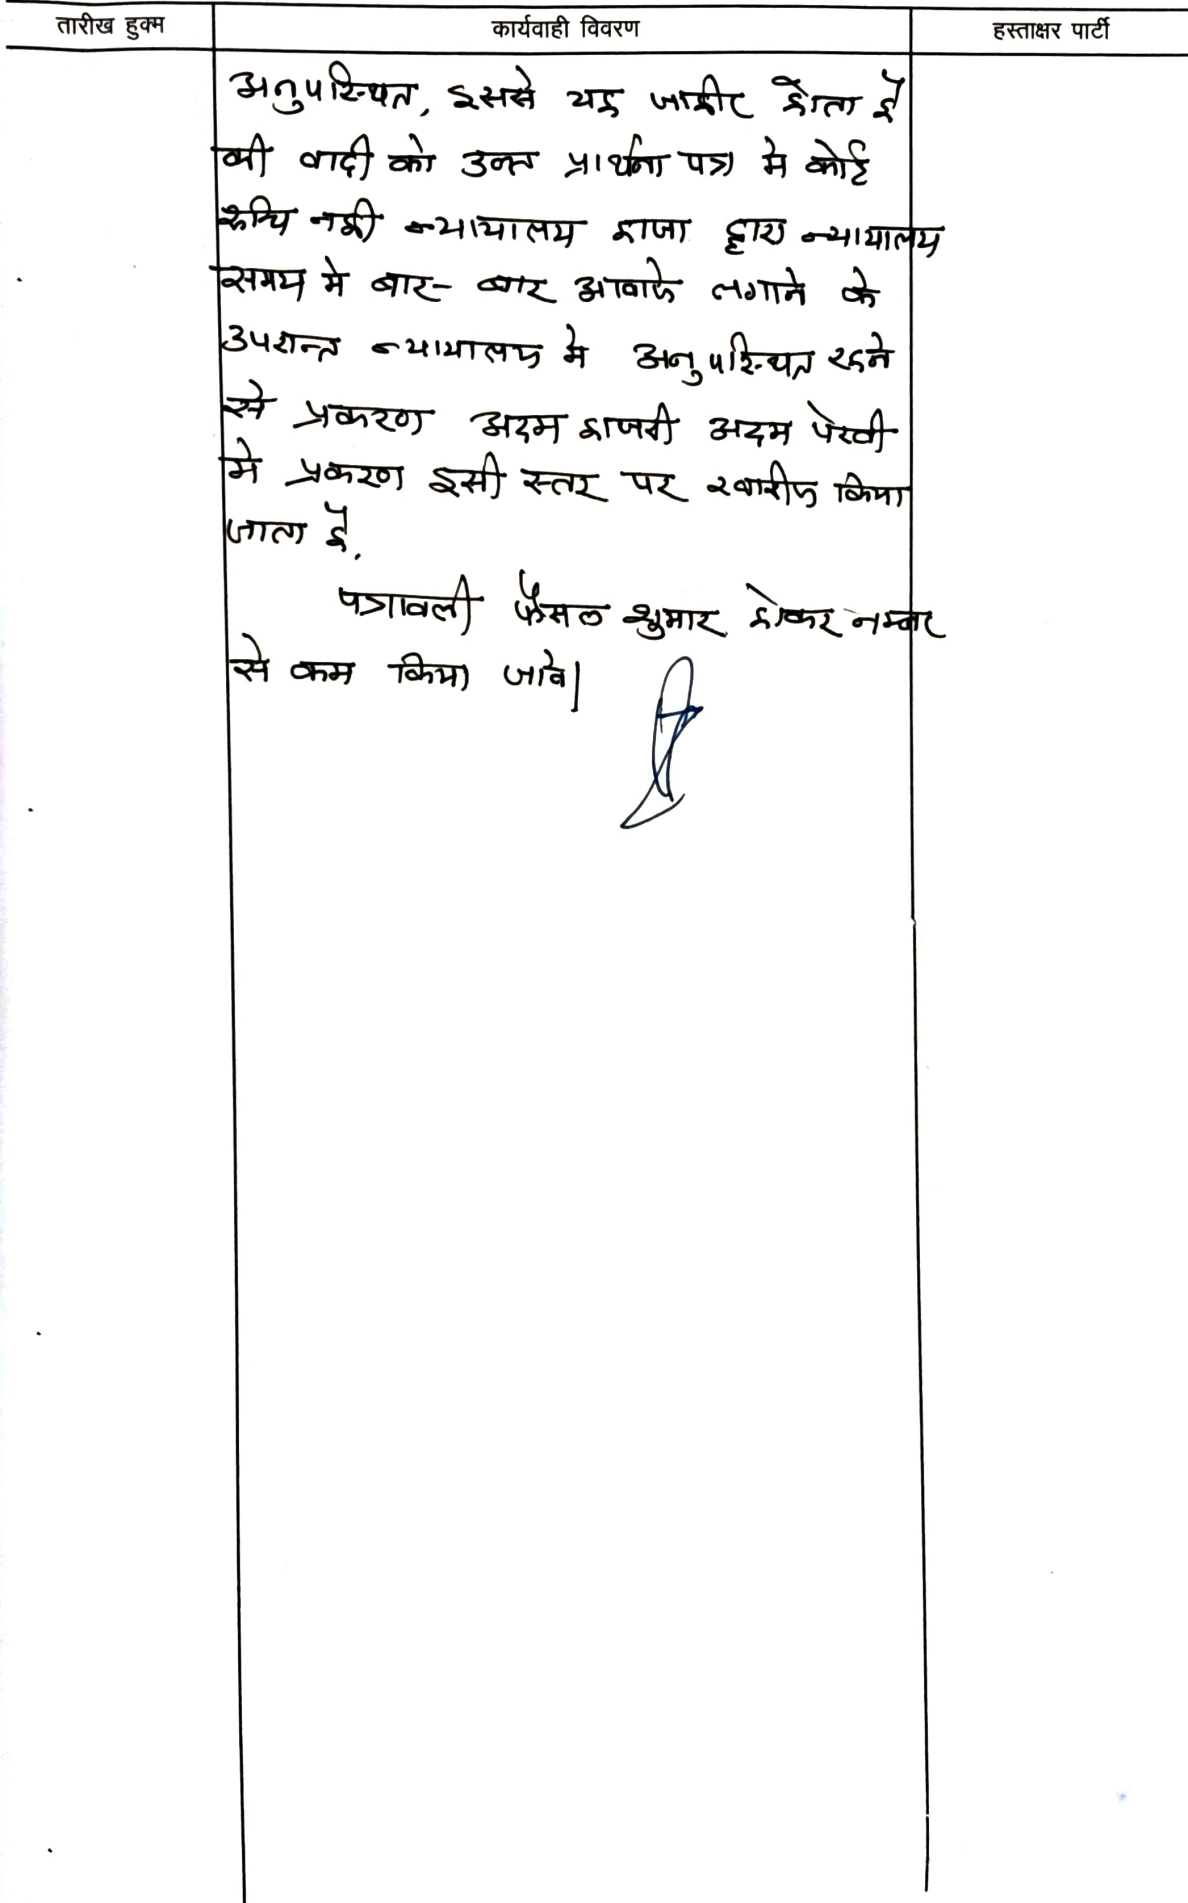 तारीख हुक्म कार्यवाही विवरण हस्ताक्षर पार्टी
अनुपस्थित, इससे यह जाहीर होता है
की वादी को उक्त प्रार्थना पत्र मे कोई
रुचि नही न्यायालय हाजा द्वारा न्यायालय
समय मे बार-बार आवाजे लगाने के
उपरान्त न्यायालय मे अनुपस्थित रहने
से प्रकरण अदम हाजरी अदम पेरवी
मे प्रकरण इसी स्तर पर खारीज किया
जाता है.
पत्रावली फैसल शुमार होकर नम्बर
से कम किया जावे|